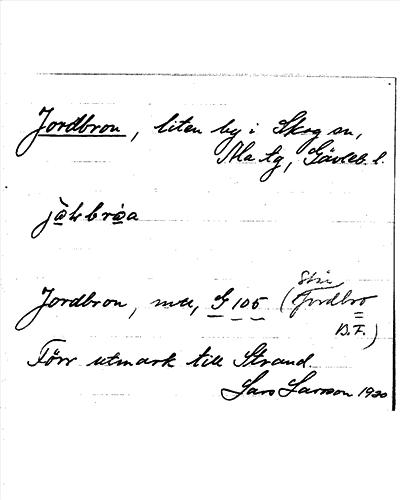 Jordbron, liten by i Skog sn,
Ala tg, Gävleb. l.
Jordbron, G 105 (Jordbro
B.F.)
Förr utmark till Strand.
Lars Larsson 1920